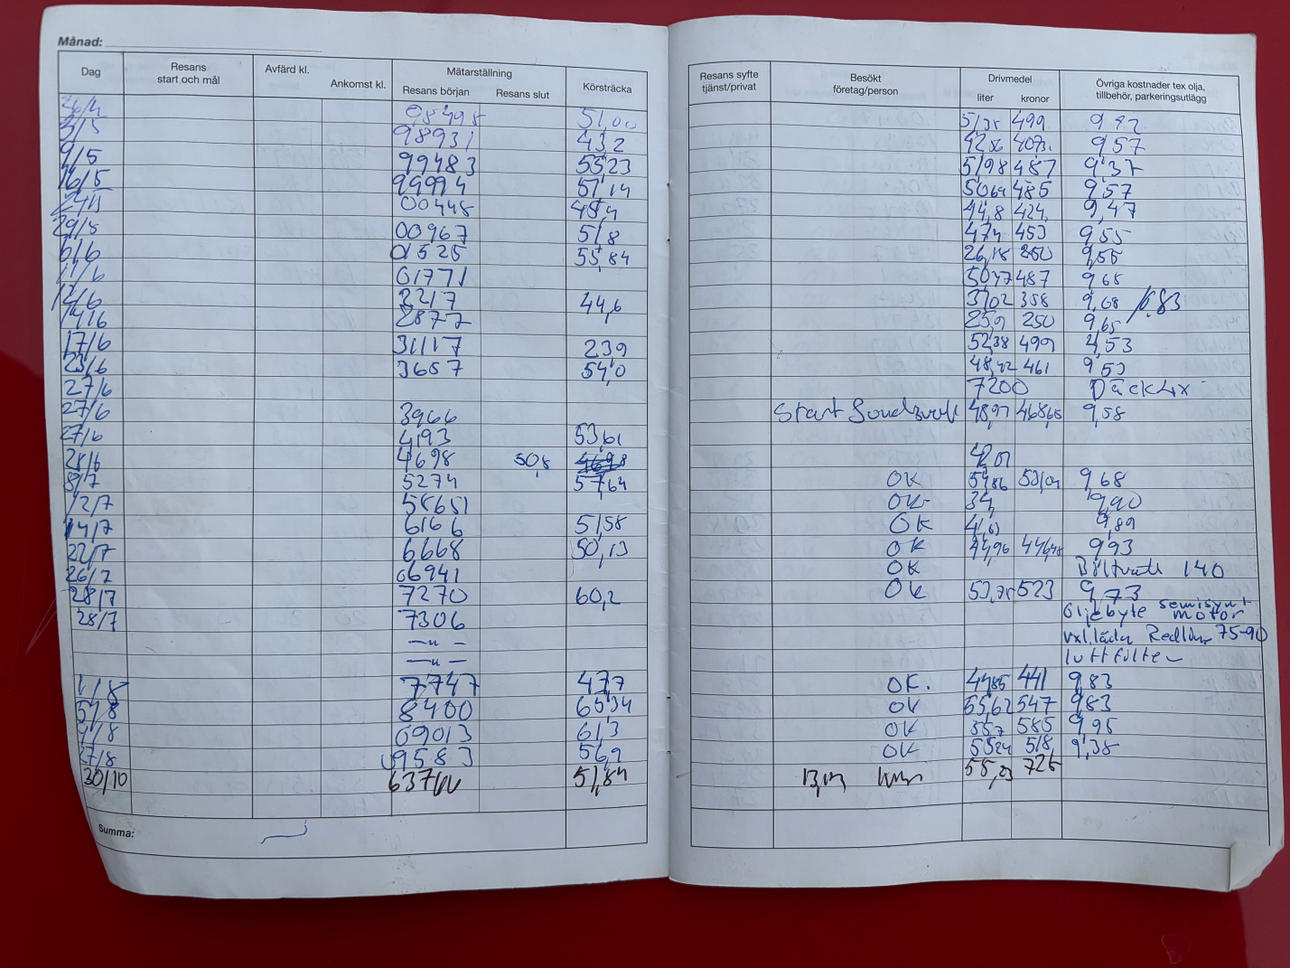 Månad:
Dag Resans start och mål Avfärd kl. Ankomst kl. Mätarställning Resans början Resans slut Körsträcka Resans syfte tjänst/privat Besökt företag/person Drivmedel liter kronor Övriga kostnader tex olja, tillbehör, parkeringsutlägg
98495 51,00 51,35 499
98931 43,2 9,57
9/5 99483 55,23 51,98 487 9,37
16/5 99994 51,14 50,64 485 9,57
00448 45,4 44,8 424 9,47
29/5 00967 51,8 47,4 453 9,55
6/6 01525 55,84 26,18 250 9,55
11/6 01771 50,47 487 9,65
12/6 2217 44,6 37,02 358 9,68
14/6 2877 25,9 250 9,65
17/6 31117 239 52,38 499 9,53
23/6 3657 54,0 48,42 461 9,53
27/6 7200 Däck
27/6 3966 Start Sundsvall 48,97 468,65 9,58
27/6 4193 53,61
28/6 4698 50,8
8/7 5274 57,64 OK 9,68
12/7 58651 OK 34, 9,90
14/7 6166 51,58 OK 9,89
22/7 6668 50,13 OK 44,96 9,93
26/7 06941 OK 140
28/7 7270 60,2 OK 53,75 523 9,73
28/7 7306 Oljebyte semisynt motor
— " — vxl.låda Redline 75-90
— " — luftfilter
1/8 7747 47,7 OK. 44,86 441 9,83
5/8 8400 65,34 OK 55,62 547 9,83
9/8 09013 61,3 OK 585 9,95
17/8 09583 56,9 OK 55,24 518 9,38
30/10 637 51,84 55,23 725
Summa: